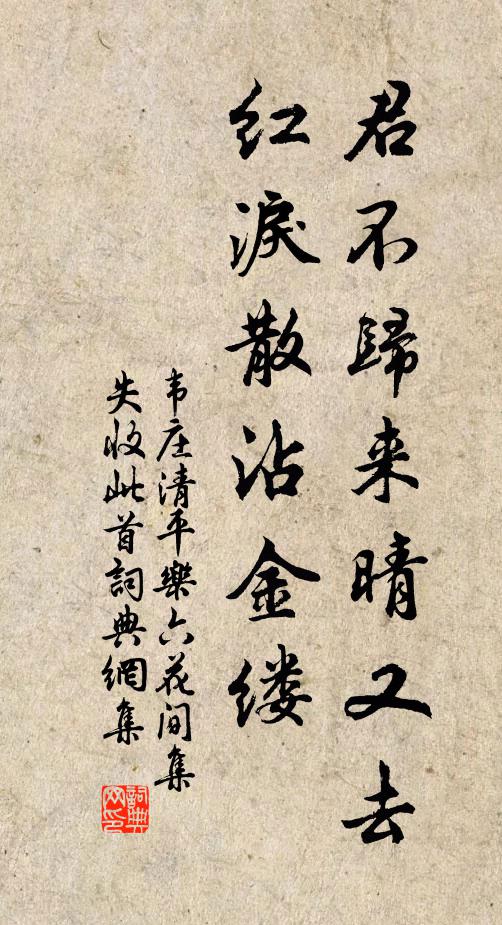 君不歸来晴又去
红淚散沾金缕
韦庄清平樂六花间集
失收此首詞典網集
詞典网印